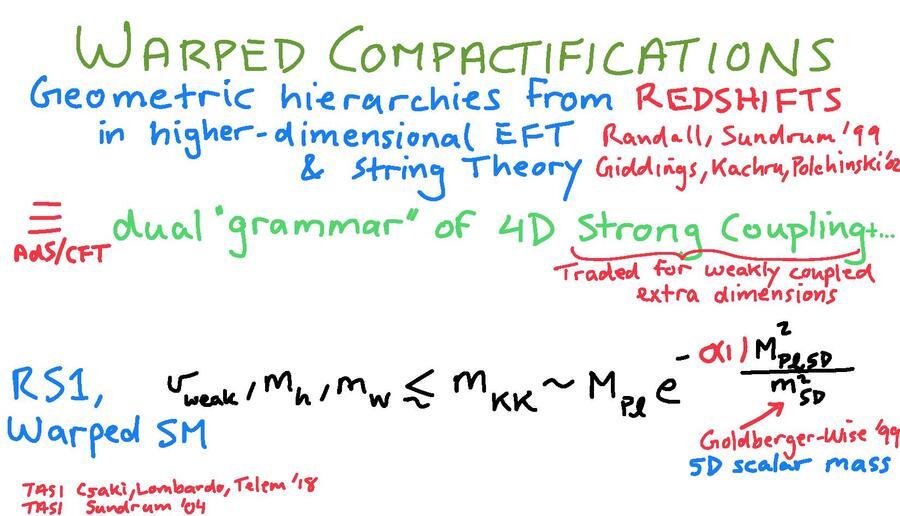 WARPED COMPACTIFICATIONS
Geometric hierarchies from REDSHIFTS
in higher-dimensional EFT Randall, Sundrum '99
& String Theory Giddings, Kachru, Polchinski '02
≡ dual "grammar" of 4D Strong Coupling+...
AdS/CFT
Traded for weakly coupled
extra dimensions
RS1, v_weak, m_h, m_W ≲ m_KK ~ M_Pl e^{-O(1) M²_{Pl,5D} / m²_{5D}}
Warped SM
Goldberger-Wise '99
5D scalar mass
TASI Csaki, Lombardo, Telem '18
TASI Sundrum '04